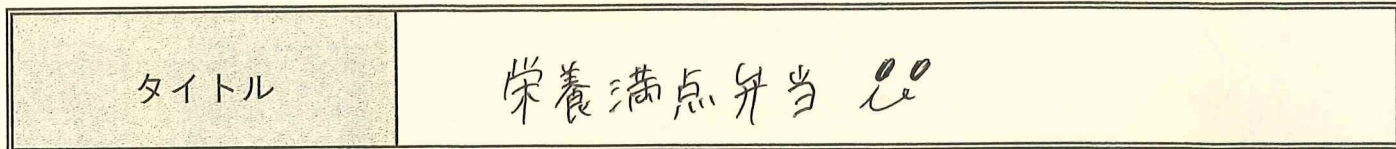 タイトル
栄養満点弁当